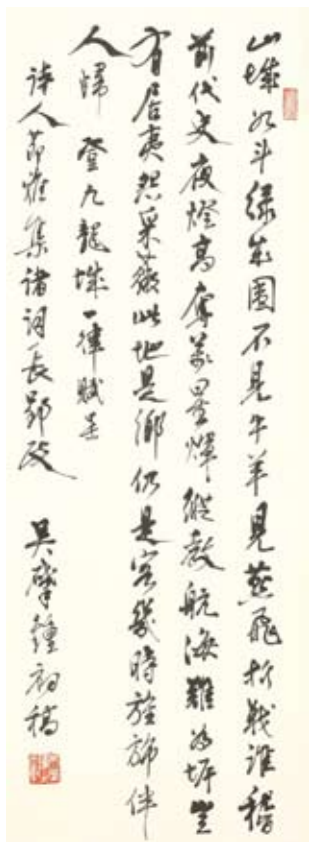 山城如斗綠成圍不見牛羊見燕飛折戟誰稽
前代史夜燈高奪萬星輝縱教航海難為豈
有居夷怨采薇此地是鄉仍是客幾時旌旆伴
人歸 登九龍城一律賦呈
詩人節雅集諸詞長郢政 吳肇鍾初稿